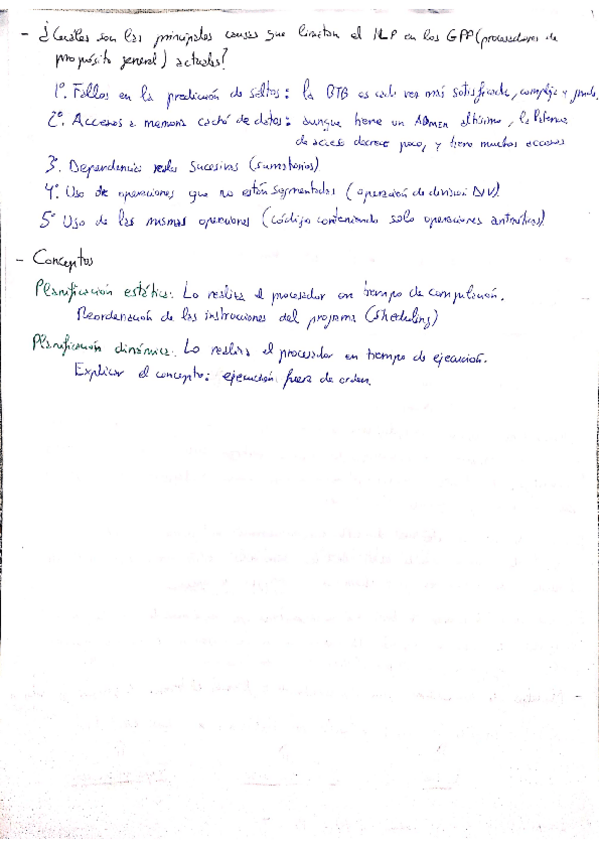 - ¿Cuáles son las principales causas que limitan el ILP en los GPP (procesadores de
propósito general) actuales?
1º. Fallos en la predicción de saltos: la BTB es cada vez más sofisticada, compleja y
2º. Accesos a memoria caché de datos: aunque tiene un altísimo, la latencia
de acceso decrece poco, y tiene muchos accesos
3º. Dependencias reales sucesivas (sumatorios)
4º. Uso de operaciones que no están segmentadas (operación de división DIV).
5º Uso de las mismas operaciones (código conteniendo solo operaciones aritméticas)
- Conceptos
Planificación estática: Lo realiza el procesador en tiempo de compilación.
Reordenación de las instrucciones del programa (Sheduling)
Planificación dinámica: Lo realiza el procesador en tiempo de ejecución.
Explicar el concepto: ejecución fuera de orden.